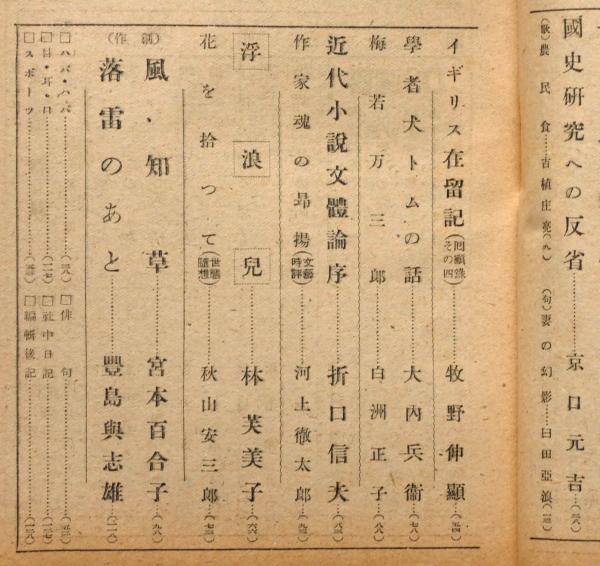 國史研究への反省……京口元吉…(三八)
(歌)農民食…吉植庄亮(九) (句)妻の幻影…臼田亞浪(二三)
イギリス在留記(回顧錄その四)……牧野伸顯…(五四)
學者犬トムの話……大內兵衞…(七八)
梅若万三郎……白洲正子…(八八)
近代小說文體論序……折口信夫…(八三)
作家魂の昻揚(文藝時評)……河上徹太郎…(九三)
浮浪兒……林芙美子…(六六)
花を拾つて(世態隨想)……秋山安三郎…(七三)
(創作)
風知草……宮本百合子…(九八)
落雷のあと……豐島與志雄…(二八)
□ハバ・ハバ……
□俳句……
□目・耳・口……(二七)
□社中日記……(三七)
□スポーツ……
□編輯後記……(三八)